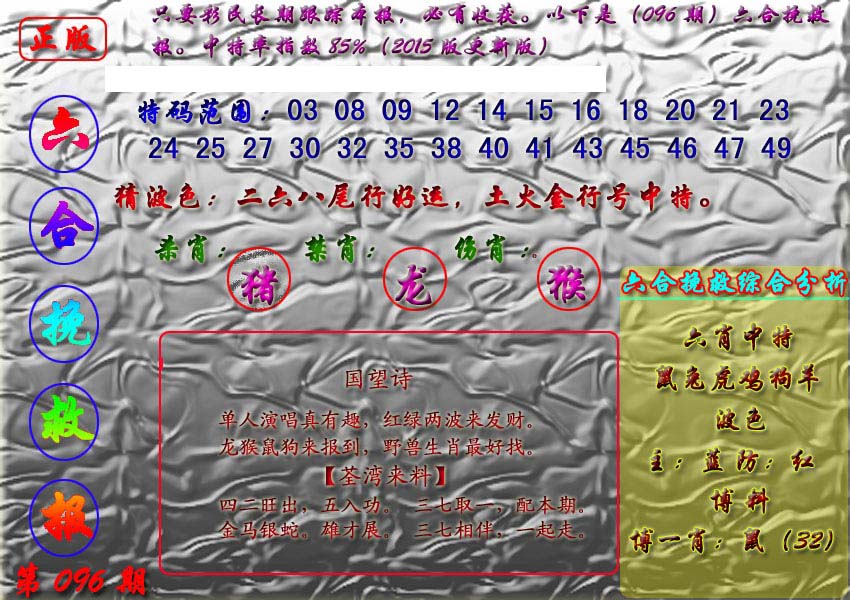 正版
只要彩民长期跟踪本报，必有收获。以下是（096期）六合挽救
报。中特率指数85%（2015版更新版）
六
合
挽
救
报
第096期
特码范围：03 08 09 12 14 15 16 18 20 21 23
24 25 27 30 32 35 38 40 41 43 45 46 47 49
猜波色：二六八尾行好运，土火金行号中特。
杀肖：猪 禁肖：龙 伤肖：猴
国望诗
单人演唱真有趣，红绿两波来发财。
龙猴鼠狗来报到，野兽生肖最好找。
【荃湾来料】
四二旺出，五入功。 三七取一，配本期。
金马银蛇。雄才展。 三七相伴，一起走。
六合挽救综合分析
六肖中特
鼠兔虎鸡狗羊
波色
主：蓝防：红
博料
博一肖：鼠（32）